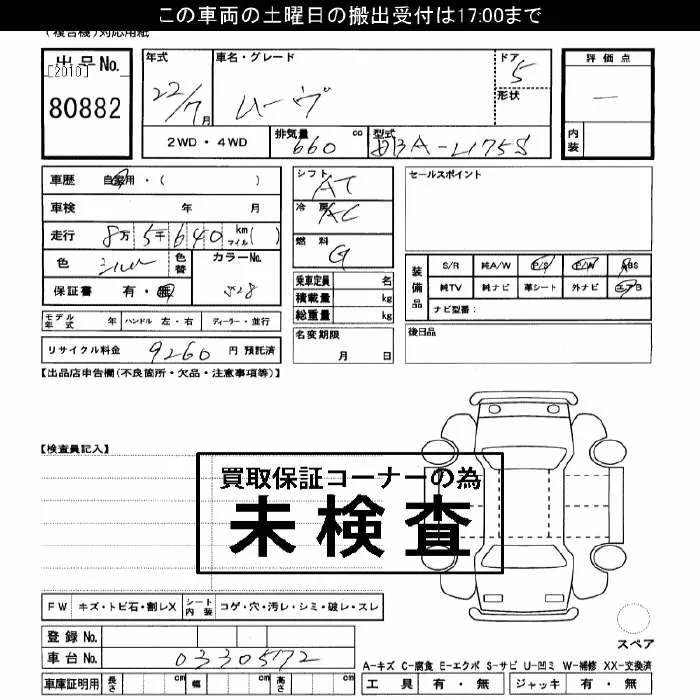 この車両の土曜日の搬出受付は17:00まで
(複合機)対応用紙
出品No. 年式 車名・グレード ドア 評価点
[2010] 22/7月 ムーヴ 5 —
80882 形状
2WD・4WD 排気量 660 cc 型式 DBA-L175S 内装
車歴 自家用・( ) シフト AT セールスポイント
車検 年 月 冷房 AC
走行 8万5千640 km マイル( )
色 シルバー 色替 カラーNo. 燃料 G
保証書 有・無 S28 乗車定員 名
装備品 S/R 純A/W P/S P/W ABS
純TV 純ナビ 革シート 外ナビ エアB
積載量 kg ナビ型番:
総重量 kg
モデル年式 年 ハンドル 左・右 ディーラー・並行 名変期限 月 日 後日品
リサイクル料金 9260 円 預託済
【出品店申告欄(不良箇所・欠品・注意事項等)】
【検査員記入】
買取保証コーナーの為
未検査
FW キズ・トビ石・割レX シート内装 コゲ・穴・汚レ・シミ・破レ・スレ
登録No.
スペア
車台No. 0330572
A-キズ C-腐食 E-エクボ S-サビ U-凹ミ W-補修 XX-交換済
車庫証明用 長さ cm 幅 cm 高さ cm 工具 有・無 ジャッキ 有・無